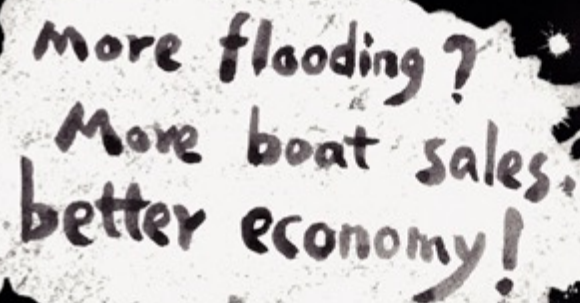 More flooding?
More boat sales.
better economy!